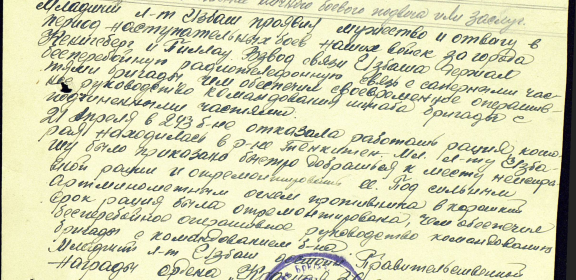 личного боевого подвига или заслуг.
Младший л-т Избаш проявил мужество и отвагу в
период наступательных боев наших войск за города
Кенигсберг и Пиллау. Взвод связи Избаша держал
бесперебойную радиотелефонную связь с саперными час-
тями бригады, чем обеспечил своевременное оператив-
ное руководство командования штаба бригады с
подчиненными частями.
21 Апреля в 243 б-не отказала работать рация, кото-
рая находилась в р-не Тенкитен. Мл. л-ту Избa-
шу было приказано быстро добраться к месту неисправ-
ной рации и отремонтировать ее. Под сильным
артминометным огнем противника в короткий
срок рация была отремонтирована, чем обеспечил
бесперебойное оперативное руководство командования
бригады с командованием б-на.
Младший л-т Избаш достоин Правительственной
Награды ордена